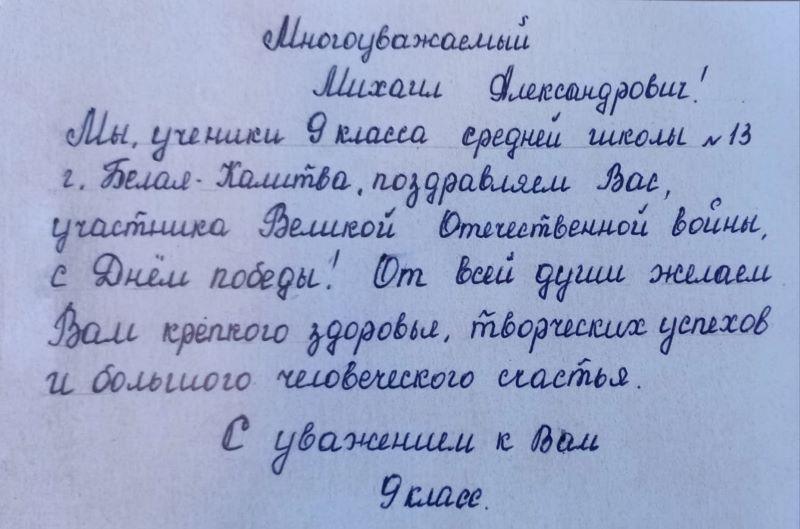 Многоуважаемый
Михаил Александрович!
Мы, ученики 9 класса средней школы №13
г. Белая-Калитва, поздравляем Вас,
участника Великой Отечественной войны,
с Днём победы! От всей души желаем
Вам крепкого здоровья, творческих успехов
и большого человеческого счастья.
С уважением к Вам
9 класс.